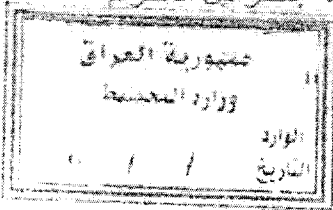 جمهورية العراق
وزارة التخطيط
الوارد
التاريخ / /